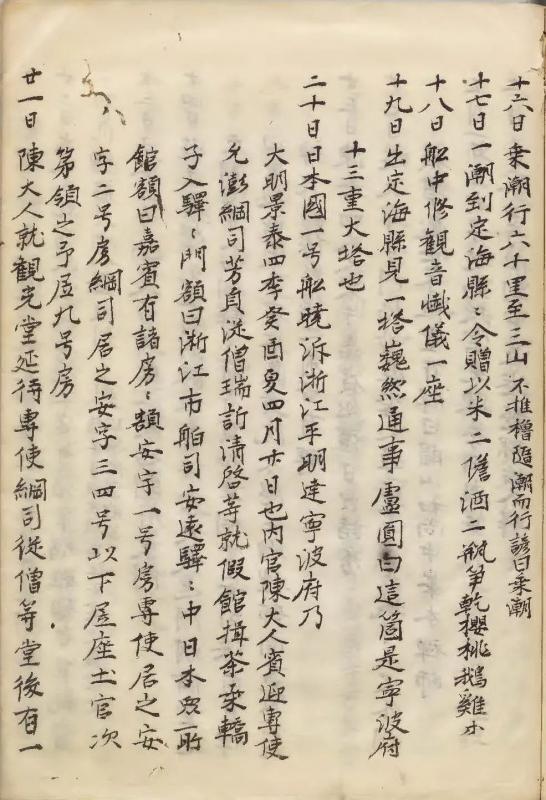 十六日乗潮行六十里至三山 不推櫓随潮而行諺曰乗潮
十七日一潮到定海縣〻令贈以米二檐酒二瓶笋乾桜桃鵝雞ホ
十八日舩中修観音懺儀一座
十九日出定海縣見一塔巍然通事盧圓曰這箇是寧波府
十三重大塔也
二十日日本國一号舩暁泝浙江平明達寧波府乃
大明景泰四季癸酉夏四月廿日也内官陳大人賓迎專使
允澎綱司芳貞従僧瑞訢清啓等就假館揖茶乗轎
子入驛〻門額曰浙江市舶司安遠驛〻中日本衆所
館額曰嘉賓有諸房〻額安字一号房專使居之安
字二号房綱司居之安字三四号以下居座土官次
第領之予居九号房
廿一日 陳大人就観光堂延待專使綱司従僧等堂後有一